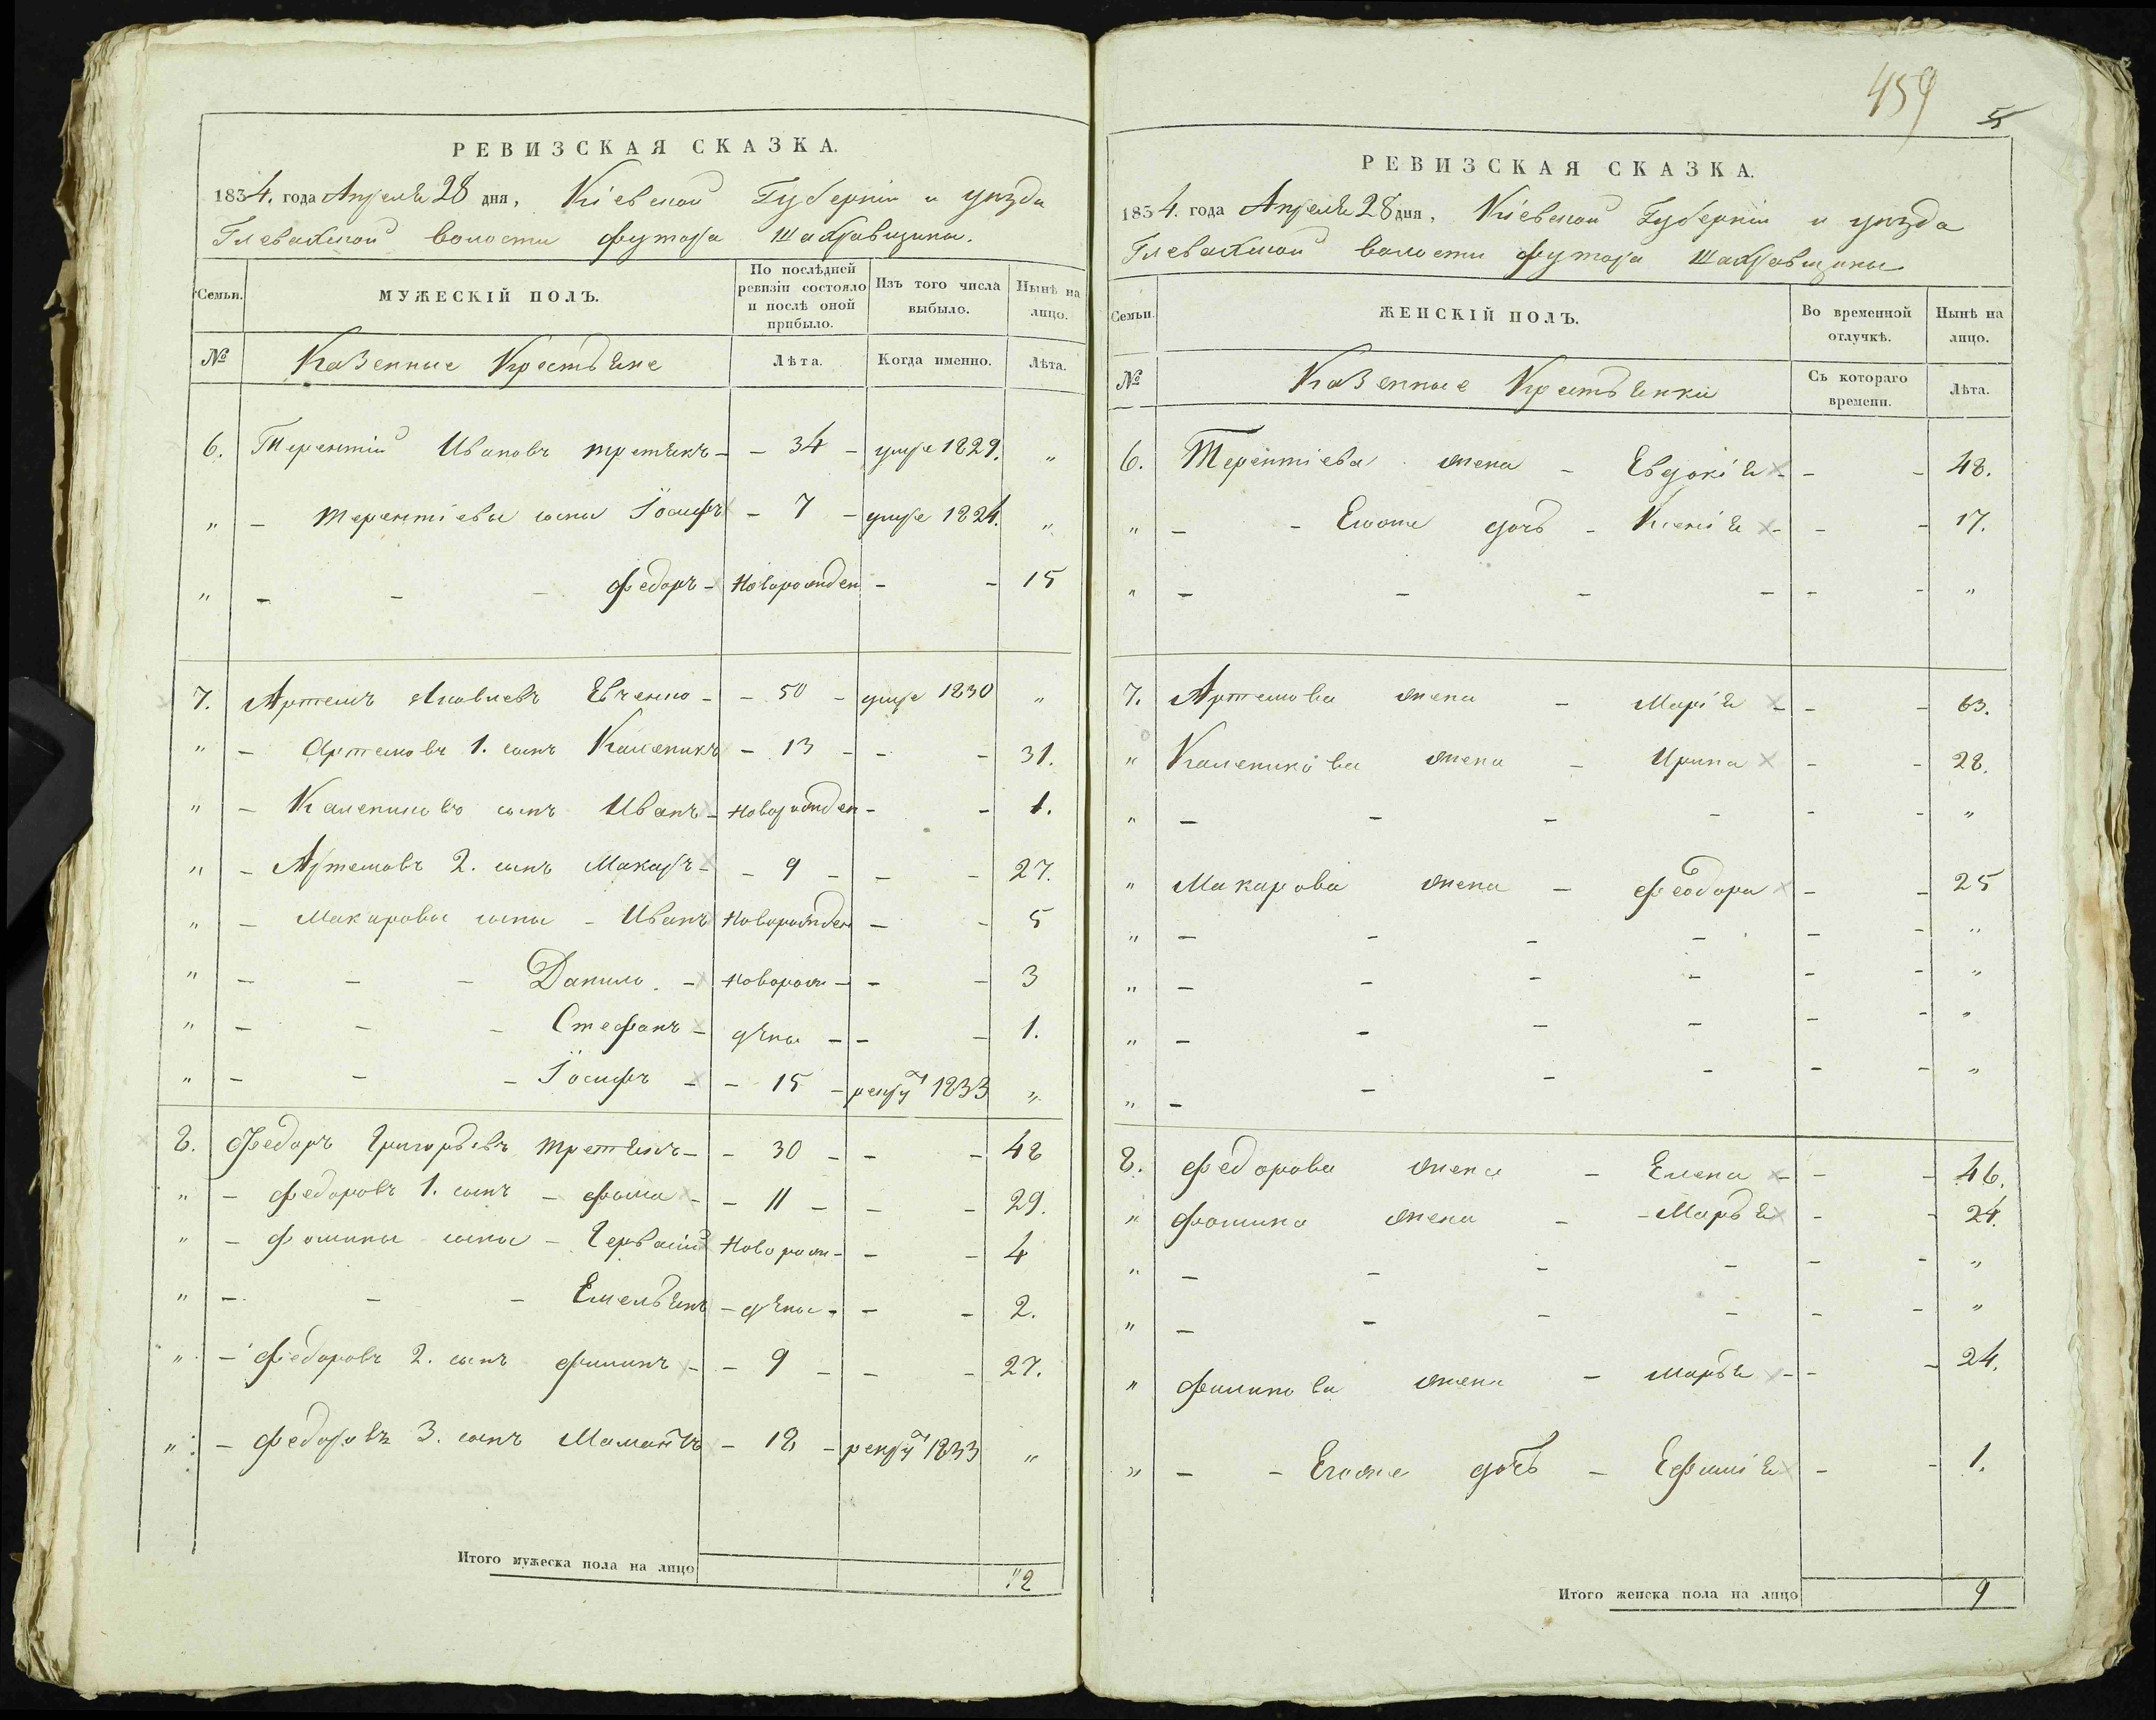 РЕВИЗСКАЯ СКАЗКА.
1834. года Апреля 28 дня, Кіевской Губерніи и уѣзда
Глевахской волости футора Шахравщины.
Семьи.
МУЖЕСКІЙ ПОЛЪ.
По послѣдней ревизіи состояло и послѣ оной прибыло.
Изъ того числа выбыло.
Нынѣ на лицо.
№ Казенные Крестьяне Лѣта. Когда именно. Лѣта.
6. Терентій Ивановъ третякъ - - 34 - умре 1829. "
" - терентіевы сыны Іосифъ - 7 - умре 1824. "
" - - - Федоръ - Новорожден - - 15
7. Артемъ Яковлевъ Евченко - - 50 - умре 1830 "
" - Артемовъ 1. сынъ Каленикъ - 13 - - - 31.
" - Калениковъ сынъ Иванъ - Новорожден - - 1.
" - Артемовъ 2. сынъ Макаръ - - 9 - - - 27.
" - Макаровы сыны - Иванъ Новорожден - - 5
" - - - Данило - Новорож - - - 3
" - - - Стефанъ - дѣны - - - 1.
" - - - Іосифъ - - 15 - рекру 1833 "
8. Федоръ Григорьевъ третякъ - - 30 - - - 48
" - Федоровъ 1. сынъ - Фома - - 11 - - - 29.
" - Фомины сыны - Герьвасій Новорож - - - 4
" - - - Емельянъ - дѣны - - - 2.
" - Федоровъ 2. сынъ Филипъ - - 9 - - - 27.
" - Федоровъ 3. сынъ Мамантъ - 18 - рекру 1833 "
Итого мужеска пола на лицо 12
459
5
РЕВИЗСКАЯ СКАЗКА.
1834. года Апреля 28 дня, Кіевской Губерніи и уѣзда
Глевахской волости футора Шахравщины
Семьи.
ЖЕНСКІЙ ПОЛЪ.
Во временной отлучкѣ.
Нынѣ на лицо.
№ Казенные Крестьянки Съ котораго времени. Лѣта.
6. Терентіева жена - Евдокія - - - 48.
" - - Егоже дочь - Ксенія - - - 17.
" - - - - - - "
7. Артемова жена - Марія - - - 63.
" Каленикова жена - Ирина - - 28.
" - - - - - - "
" Макарова жена - Феодора - - 25
" - - - - - - "
" - - - - - - "
" - - - - - - "
" - - - - - - "
8. Федорова жена - Елена - - - 46.
" Фомина жена - - Марья - - 24.
" - - - - - - "
" - - - - - - "
" Филипова жена - Марья - - - 24.
" - - Егоже дочь - Ефимія - - 1.
Итого женска пола на лицо 9